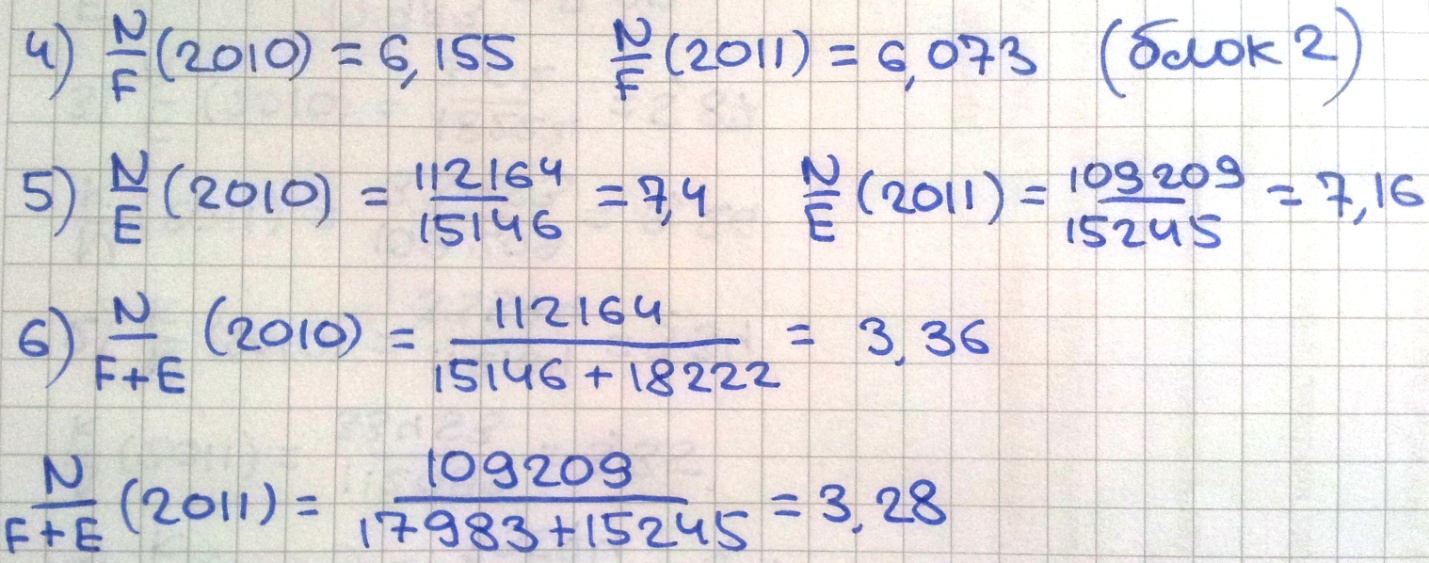 4) N/F (2010) = 6,155 N/F (2011) = 6,073 (блок 2)
5) N/E (2010) = 112164/15146 = 7,4 N/E (2011) = 109209/15245 = 7,16
6) N/F+E (2010) = 112164/15146 + 18222 = 3,36
N/F+E (2011) = 109209/17983+15245 = 3,28